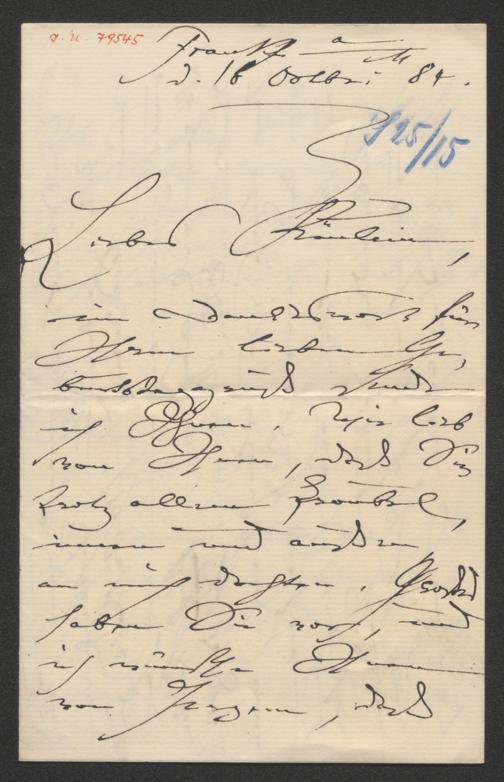 J. N. 79545
Frankf a/M
d. 16 Octbr. 84.
125/15
Liebes Fräulein,
ein Dankeswort für
Ihren lieben Ge-
burtstagsgruß sende
ich Ihnen. Wie lieb
von Ihnen, daß Sie
trotz allem Trouble,
innen und außen
an mich dachten. Großes
haben Sie vor, und
ich wünsche Ihnen
von Herzen, daß